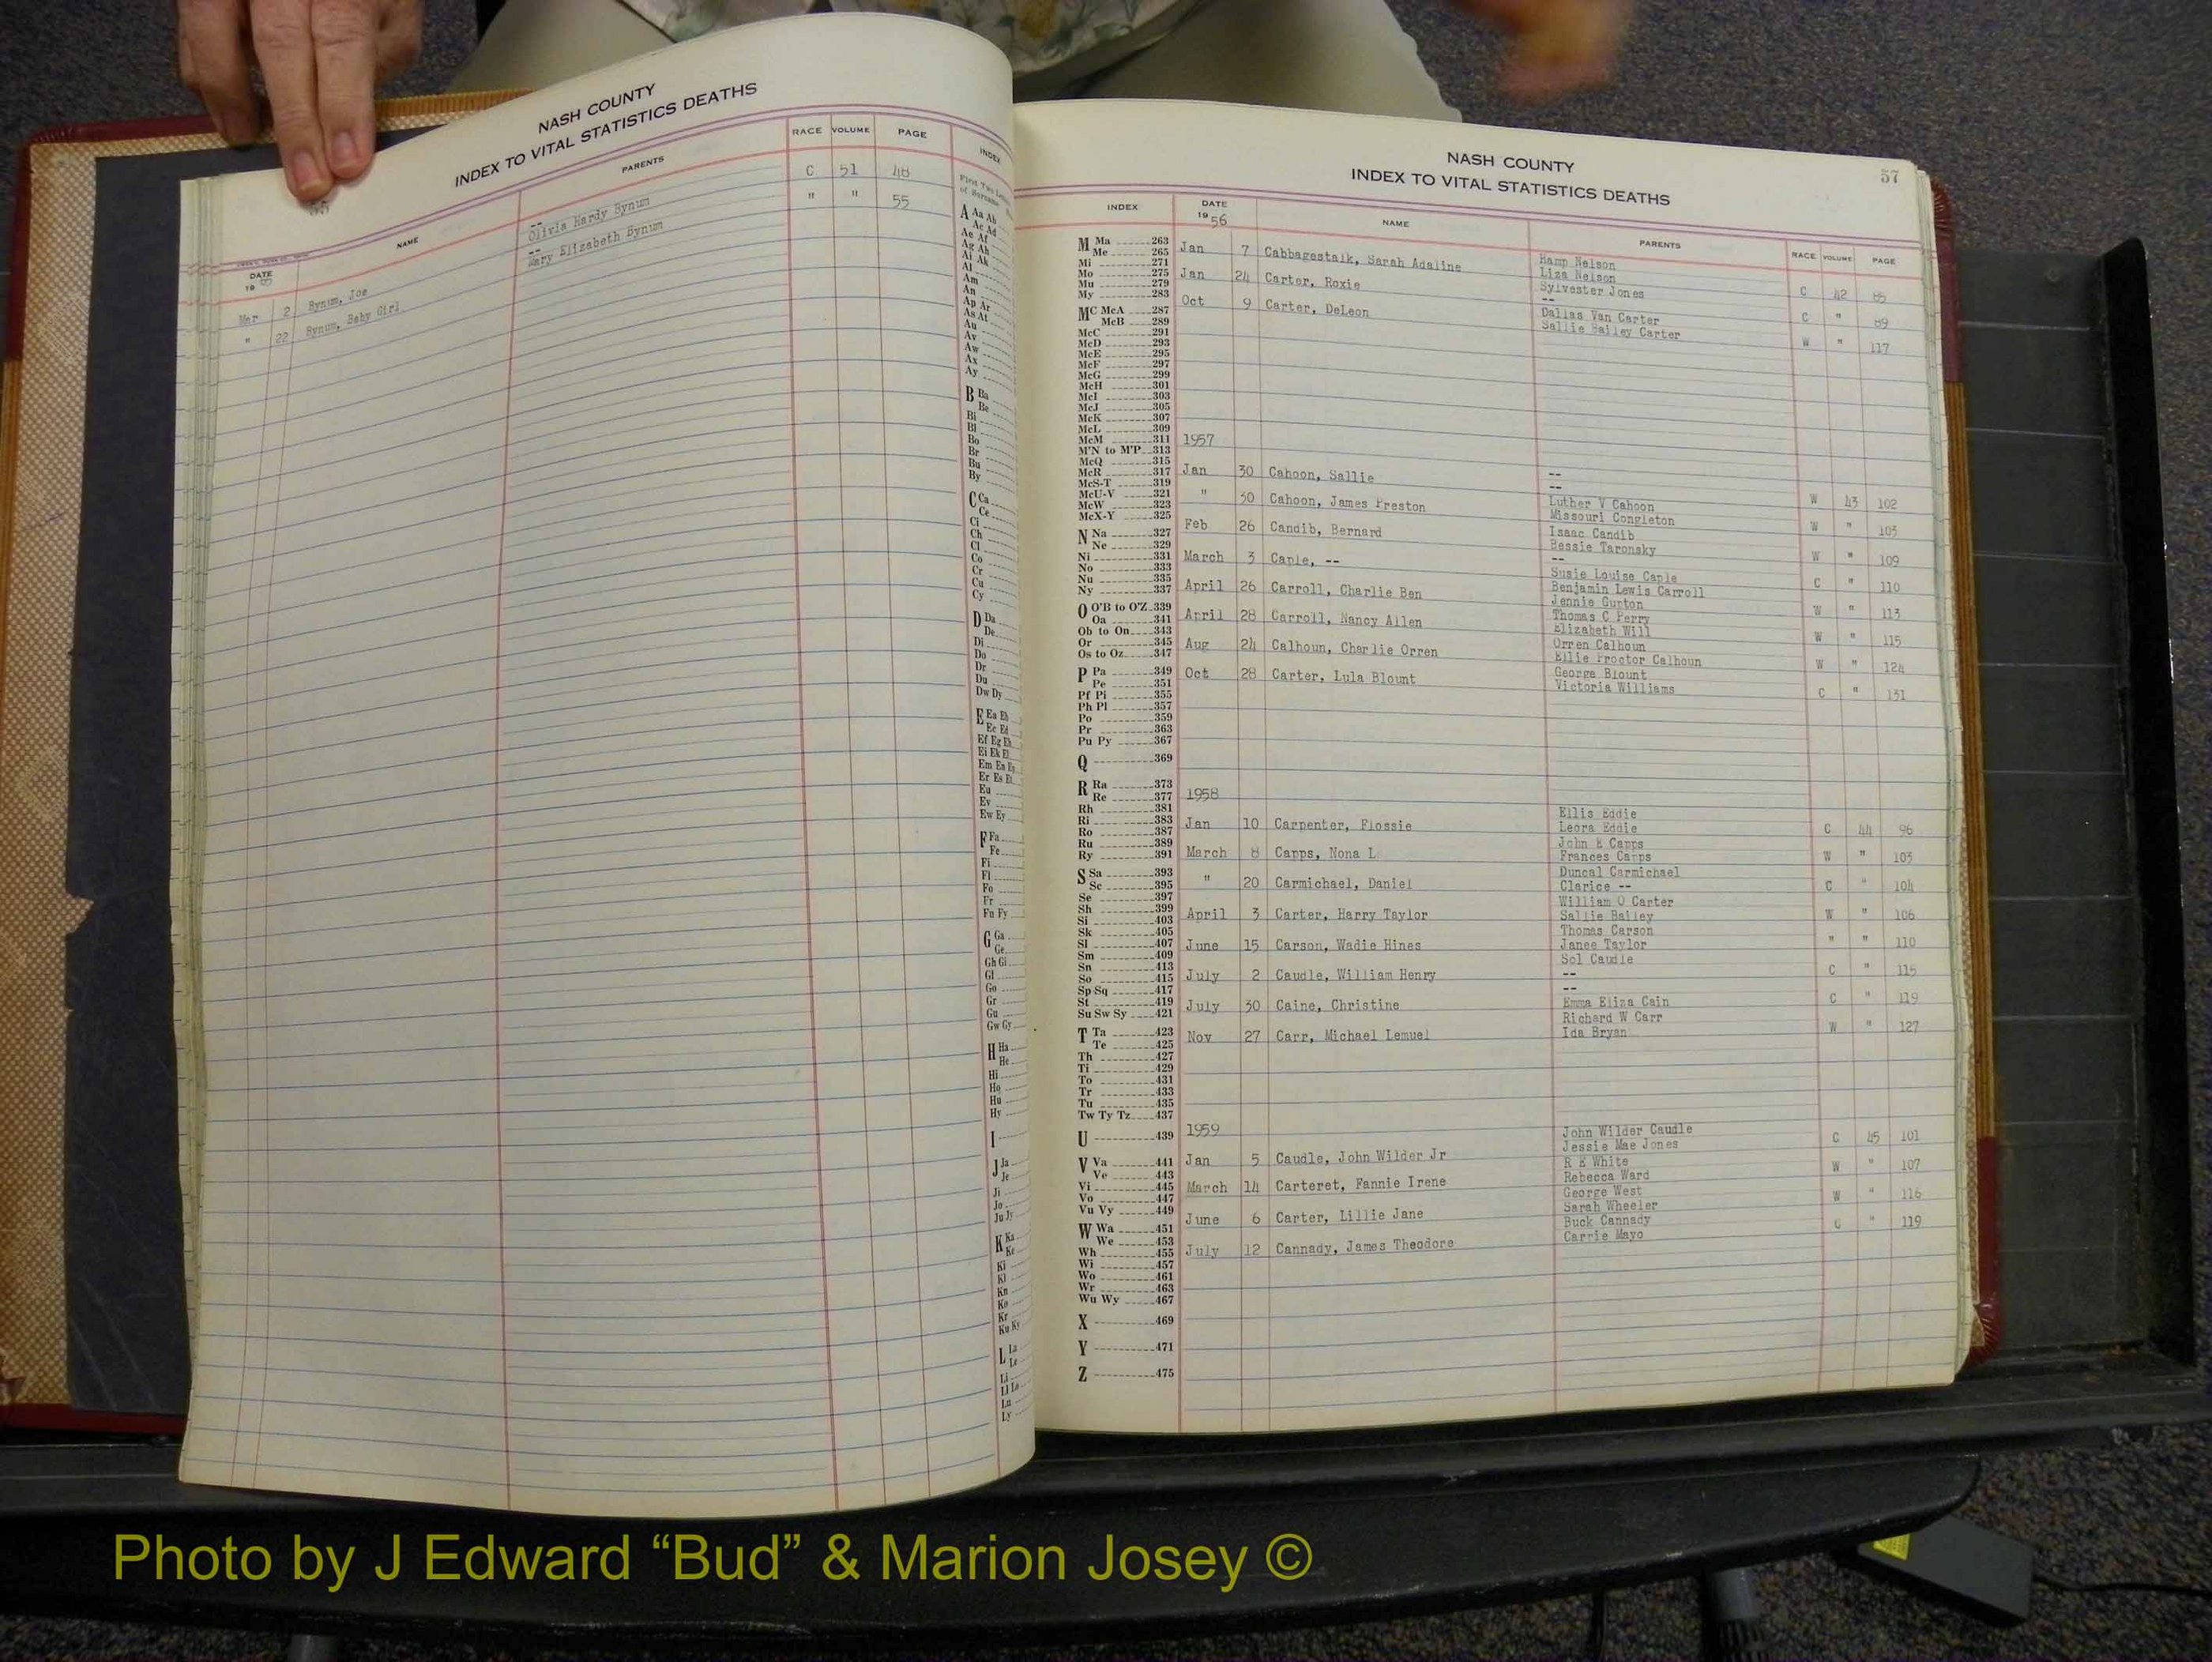 NASH COUNTY
INDEX TO VITAL STATISTICS DEATHS
DATE NAME PARENTS RACE VOLUME PAGE INDEX
19
-- C 51 48
Mar 2 Bynum, Joe Olivia Hardy Bynum
-- " " 55
" 22 Bynum, Baby Girl Mary Elizabeth Bynum
First Two
of Surname
A Aa Ab
Ac Ad
Ae Af
Ag Ah
Ai Ak
Al
Am
An
Ap Ar
As At
Au
Av
Aw
Ax
Ay
B Ba
Be
Bi
Bl
Bo
Br
Bu
By
C Ca
Ce
Ci
Ch
Cl
Co
Cr
Cu
Cy
D Da
De
Di
Do
Dr
Du
Dw Dy
E Ea Eb
Ec Ed
Ef Eg Eh
Ei Ek El
Em En
Er Es Et
Eu
Ev
Ew Ey
F Fa
Fe
Fi
Fl
Fo
Fr
Fu Fy
G Ga
Ge
Gh Gi
Gl
Go
Gr
Gu
Gw Gy
H Ha
He
Hi
Ho
Hu
Hy
I
J Ja
Je
Ji
Jo
Ju Jy
K Ka
Ke
Ki
Kl
Kn
Ko
Kr
Ku Ky
L La
Le
Li
Ll Lo
Lu
Ly
57
NASH COUNTY
INDEX TO VITAL STATISTICS DEATHS
INDEX DATE NAME PARENTS RACE VOLUME PAGE
19 56
M Ma 263
Me 265
Mi 271
Mo 275
Mu 279
My 283
MC McA 287
McB 289
McC 291
McD 293
McE 295
McF 297
McG 299
McH 301
McI 303
McJ 305
McK 307
McL 309
McM 311
M'N to M'P 313
McQ 315
McR 317
McS-T 319
McU-V 321
McW 323
McX-Y 325
N Na 327
Ne 329
Ni 331
No 333
Nu 335
Ny 337
O O'B to O'Z 339
Oa 341
Ob to On 343
Or 345
Os to Oz 347
P Pa 349
Pe 351
Pf Pi 355
Ph Pl 357
Po 359
Pr 363
Pu Py 367
Q 369
R Ra 373
Re 377
Rh 381
Ri 383
Ro 387
Ru 389
Ry 391
S Sa 393
Sc 395
Se 397
Sh 399
Si 403
Sk 405
Sl 407
Sm 409
Sn 413
So 415
Sp Sq 417
St 419
Su Sw Sy 421
T Ta 423
Te 425
Th 427
Ti 429
To 431
Tr 433
Tu 435
Tw Ty Tz 437
U 439
V Va 441
Ve 443
Vi 445
Vo 447
Vu Vy 449
W Wa 451
We 453
Wh 455
Wi 457
Wo 461
Wr 463
Wu Wy 467
X 469
Y 471
Z 475
Hamp Nelson
Jan 7 Cabbagestalk, Sarah Adaline Liza Nelson C 42 85
Sylvester Jones
Jan 24 Carter, Roxie -- C " 89
Dallas Van Carter
Oct 9 Carter, DeLeon Sallie Bailey Carter W " 117
1957
--
Jan 30 Cahoon, Sallie -- W 43 102
Luther V Cahoon
" 30 Cahoon, James Preston Missouri Congleton W " 103
Isaac Candib
Feb 26 Candib, Bernard Bessie Taronsky W " 109
--
March 3 Caple, -- Susie Louise Caple C " 110
Benjamin Lewis Carroll
April 26 Carroll, Charlie Ben Jennie Gupton W " 113
Thomas C Perry
April 28 Carroll, Nancy Allen Elizabeth Will W " 115
Orren Calhoun
Aug 24 Calhoun, Charlie Orren Ellie Proctor Calhoun W " 124
George Blount
Oct 28 Carter, Lula Blount Victoria Williams C " 131
1958
Ellis Eddie
Jan 10 Carpenter, Flossie Leora Eddie C 44 96
John E Capps
March 8 Capps, Nona L Frances Capps W " 103
Duncal Carmichael
" 20 Carmichael, Daniel Clarice -- C " 104
William O Carter
April 3 Carter, Harry Taylor Sallie Bailey W " 106
Thomas Carson
June 15 Carson, Wadie Hines Janee Taylor " " 110
Sol Caudle
July 2 Caudle, William Henry -- C " 115
--
July 30 Caine, Christine Emma Eliza Cain C " 119
Richard W Carr
Nov 27 Carr, Michael Lemuel Ida Bryan W " 127
1959
John Wilder Caudle
Jan 5 Caudle, John Wilder Jr Jessie Mae Jones C 45 101
R E White
March 14 Carteret, Fannie Irene Rebecca Ward W " 107
George West
June 6 Carter, Lillie Jane Sarah Wheeler W " 116
Buck Cannady
July 12 Cannady, James Theodore Carrie Mayo C " 119
Photo by J Edward “Bud” & Marion Josey ©